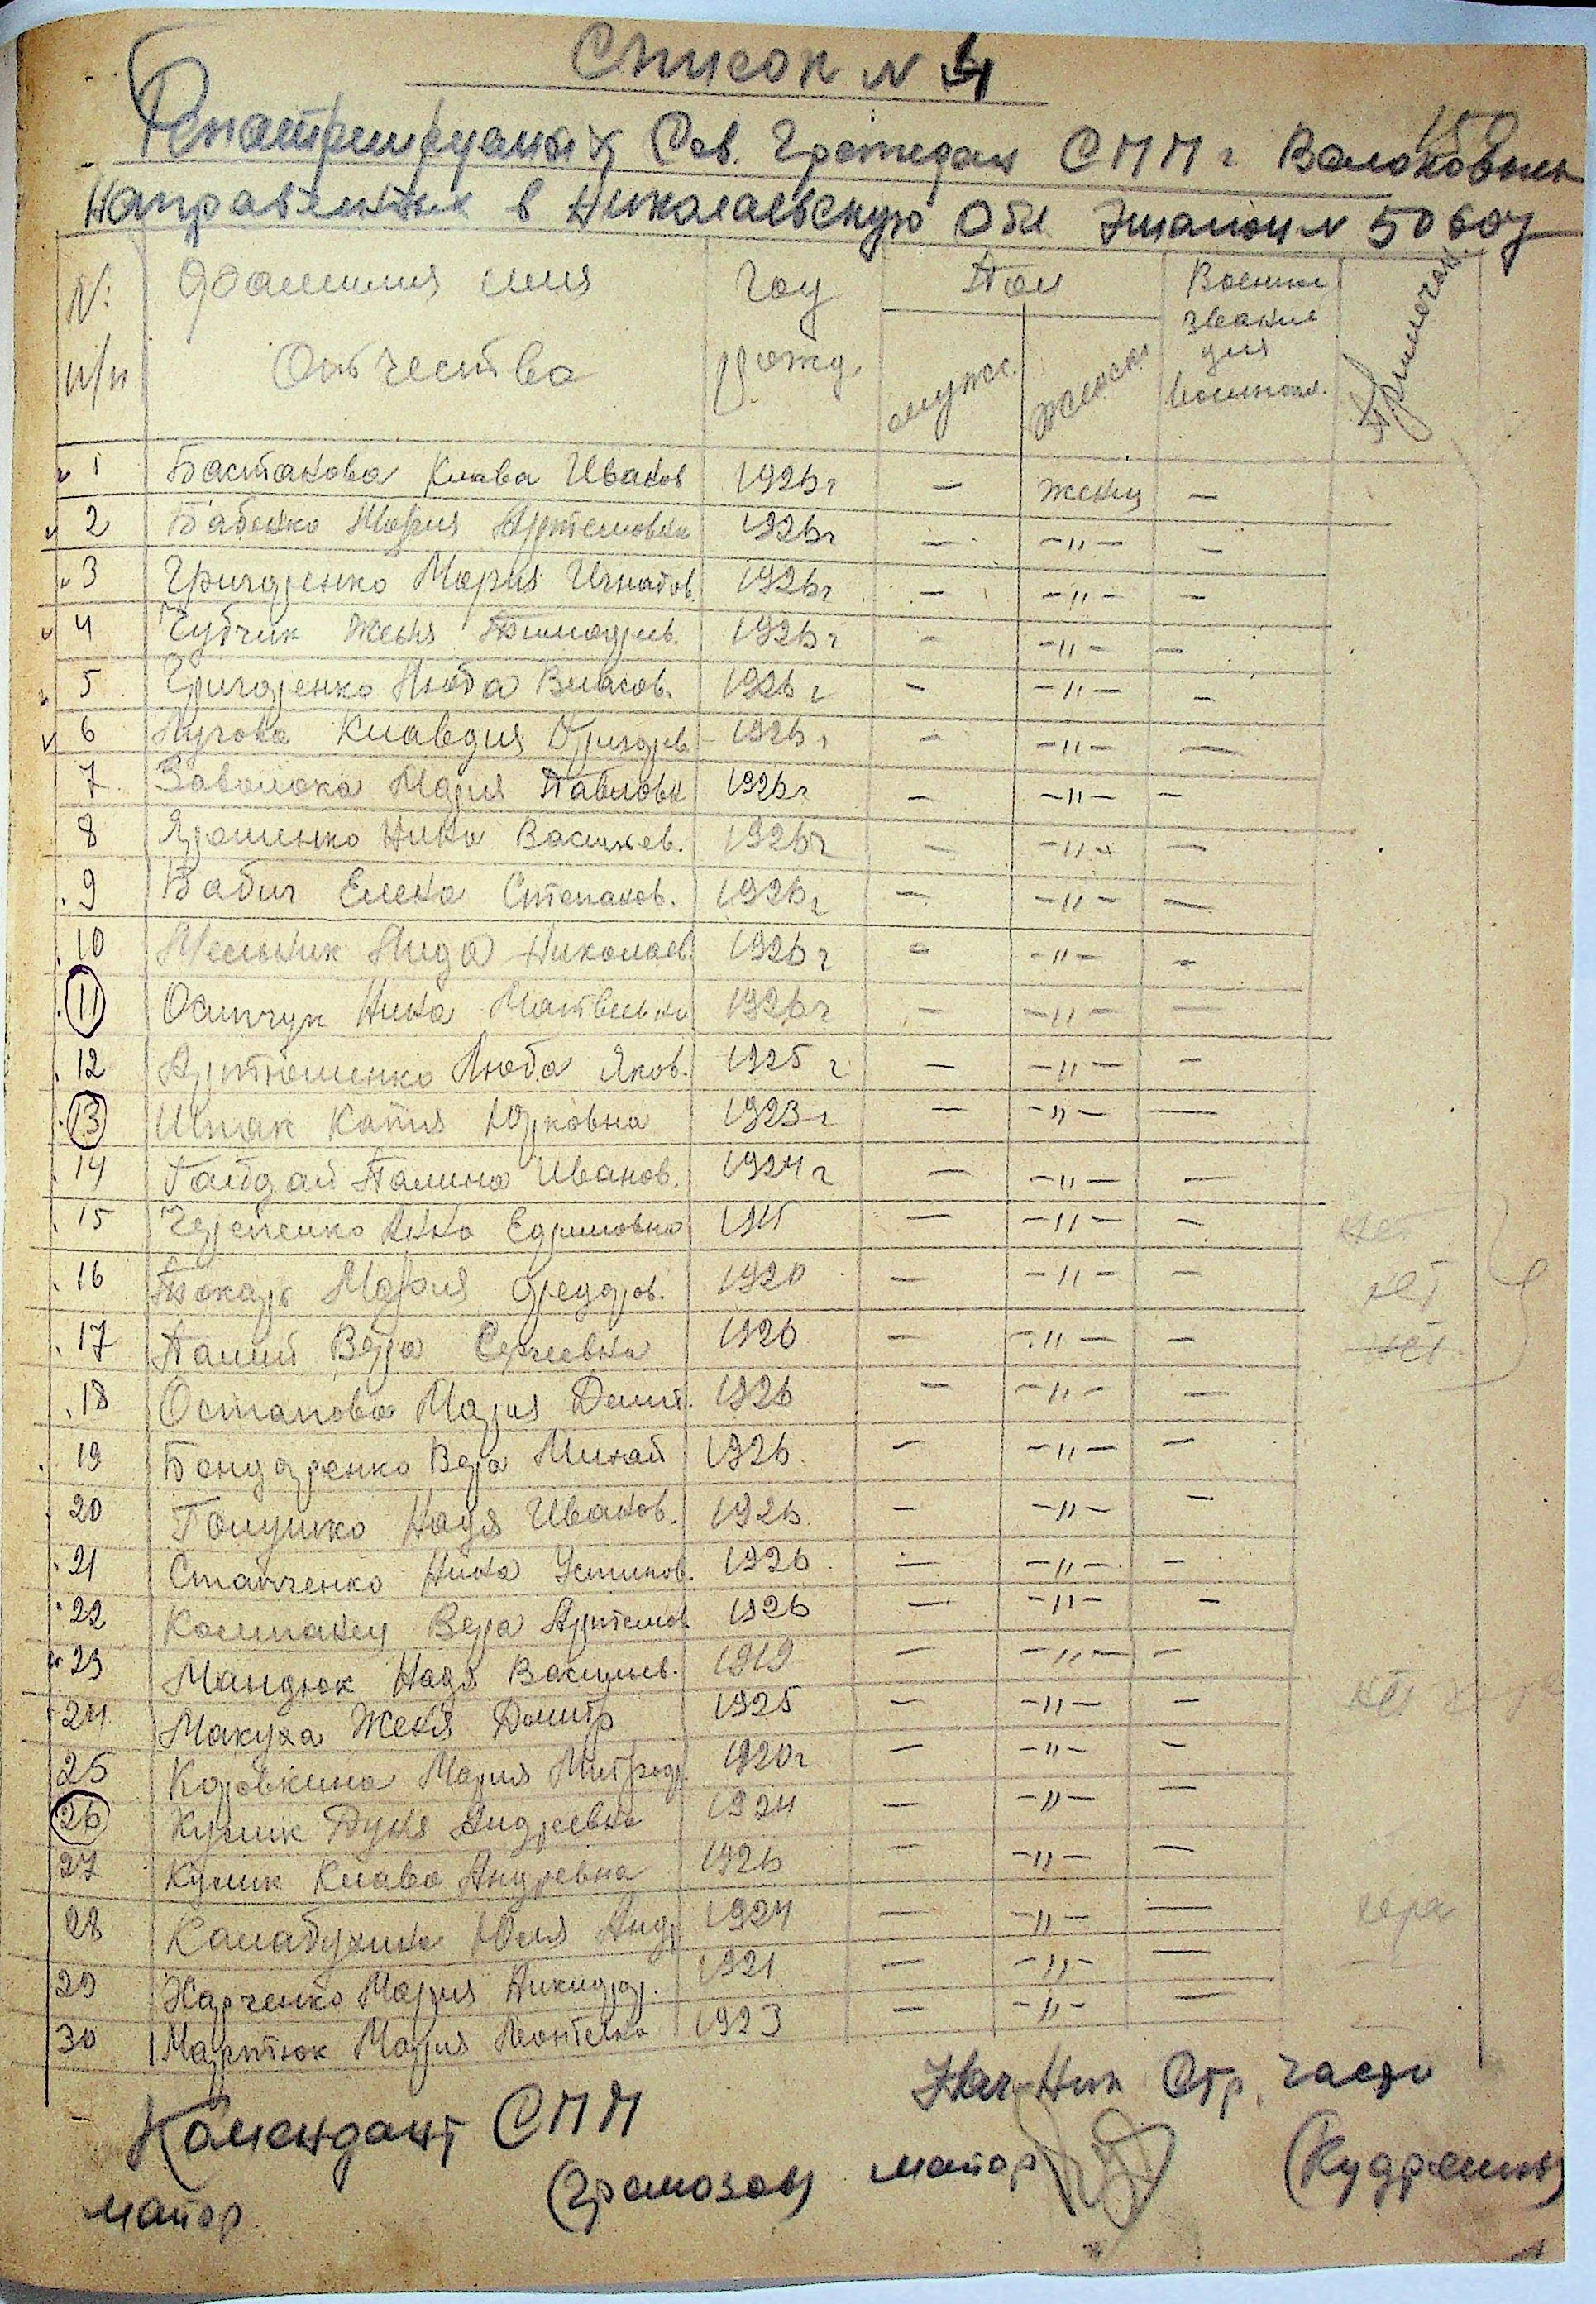 Список N 4
150
Репатриируемых Сов. Граждан СПП г Волоковыск
Направленных в Николаевскую Обл Эшалон N 50607
N: п/п Фамилия имя Отчества Год рожд. Пол мужск. женск. Военны звание для военносл. Примечан
1 Бастакова Клава Иванов 1926г — женщ —
2 Бабенко Мария Артемовна 1926г — -"- —
3 Григоренко Мария Игнатов. 1926г — -"- —
4 Чубчик Женя Тимофеев. 1926г — -"- —
5 Григоренко Люба Власов. 1926г — -"- —
6 Лугова Клавдия Григорев 1926г — -"- —
7 Заволока Мария Павловн 1926г — -"- —
8 Ярошенко Нина Васильев. 1926г — -"- —
9 Бабич Елена Степанов. 1926г — -"- —
10 Мельник Лида Николаев 1926г — -"- —
11 Осипчук Нина Матвеевна 1926г — -"- —
12 Артюшенко Люба Яков. 1925г — -"- —
13 Шпак Катия Юрковна 1923г — -"- —
14 Гайдай Полина Иванов. 1924г — -"- —
15 Черепенко Анна Ефимовна 1915 — -"- — нет
16 Токарь Мария Федоров. 1920 — -"- — нет
17 Палий Вера Сергеевна 1926 — -"- — нет
18 Остапова Мария Дмит. 1926 — -"- —
19 Бондаренко Вера Михай 1926. — -"- —
20 Голушко Надя Иванов. 1926. — -"- —
21 Статченко Нина Устинов. 1926 — -"- —
22 Колтанец Вера Артемов 1926 — -"- —
23 Мандюк Надя Васильев. 1919 — -"- —
24 Макуха Женя Дмитр 1925 — -"- — нет
25 Коровкина Мария Митроф. 1920г — -"- —
26 Кулик Дуня Андреевна 1924 — -"- —
27 Кулик Клава Андревна 1926 — -"- —
28 Калабухина Юлия Анд 1924 — -"- —
29 Харченко Мария Никифор. 1921 — -"- —
30 Мартюк Мария Леонтевна 1923 — -"- —
Комендант СПП
майор (Громозов)
Нач-Ник Стр. части
майор (Кудряшин)